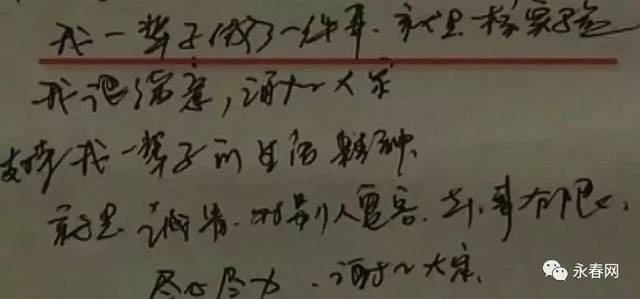 我一辈子做了一件事.就是核实验
我很满意,谢谢大家
支持我一辈子的生活精神
就是 对别人宽容. 事有恒心.
尽心尽力.谢谢大家.
永春网